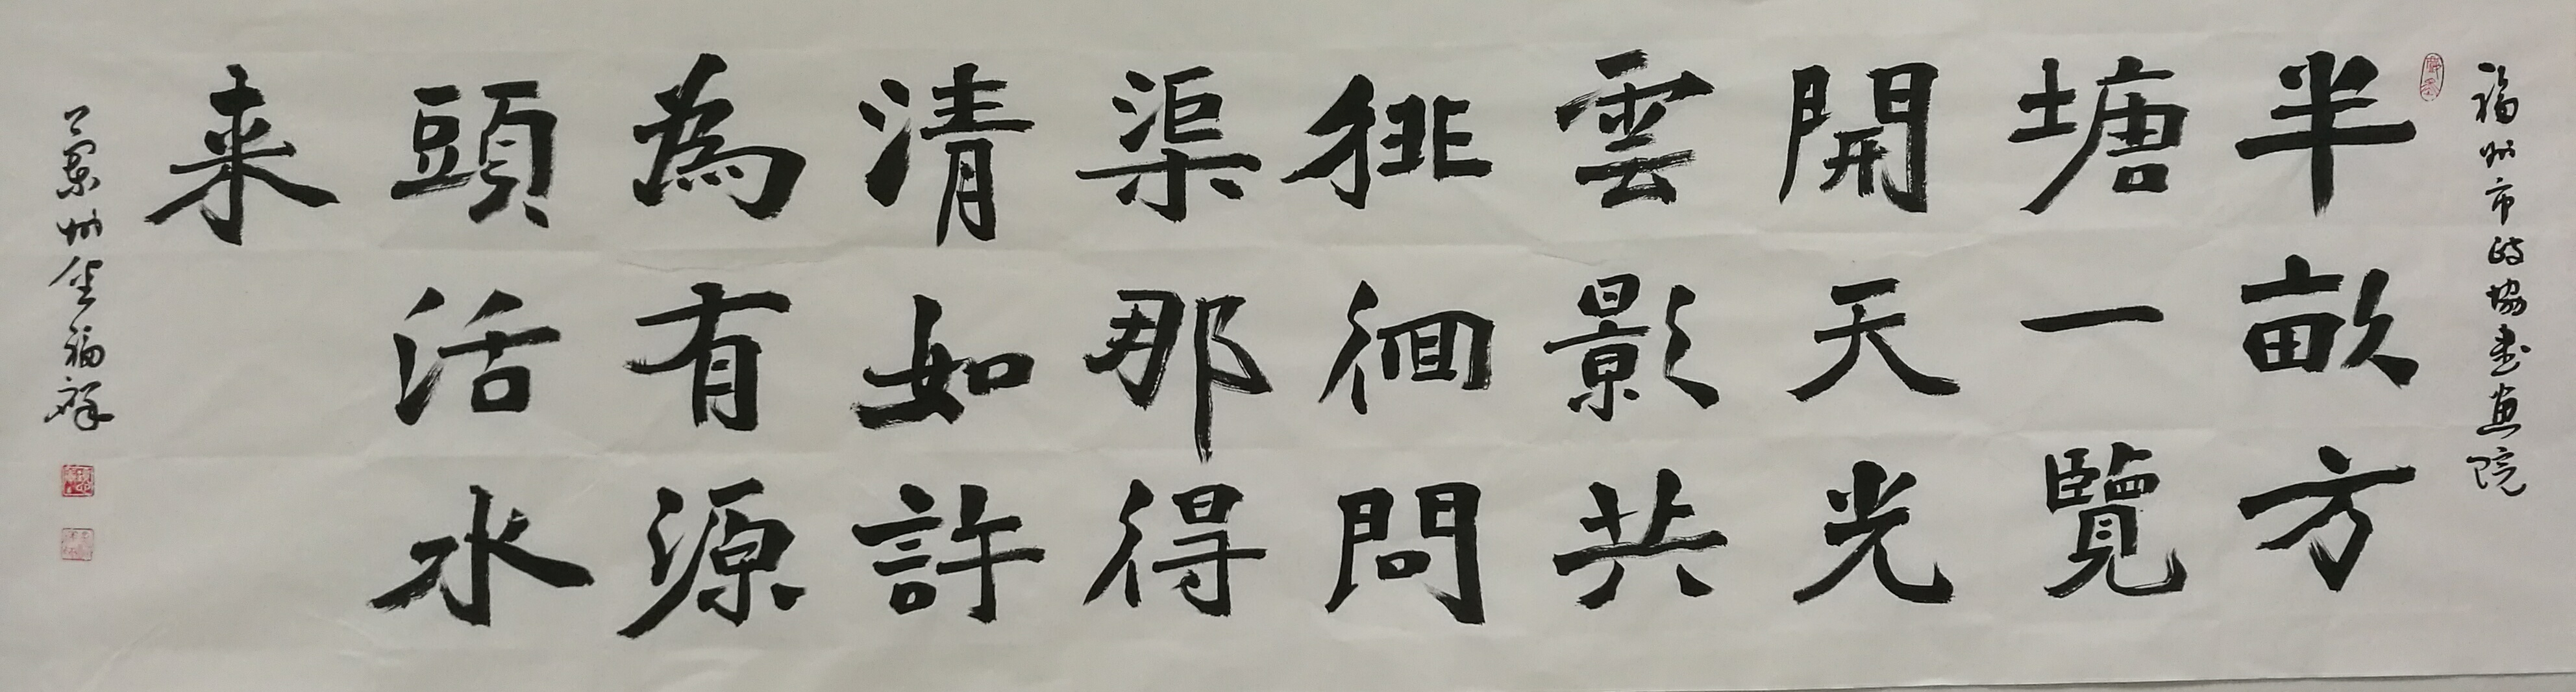 福州市政協書画院
半畝方
塘一覽
開天光
雲影共
徘徊問
渠那得
清如許
為有源
頭活水
来
蘭州金福祥